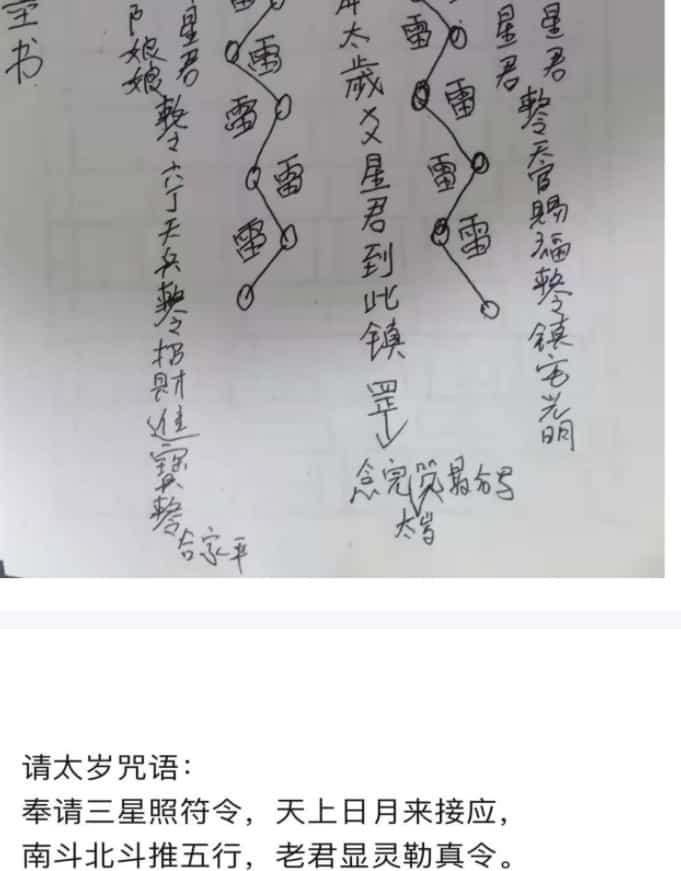 星君
星君
敕令天官赐福敕令镇宅光明
雷
雷
雷
雷
太歲
星君到此镇
罡
念完咒最后写
太岁
雷
雷
雷
雷
星君
娘娘
敕令六丁天兵敕令招財進寶敕令
合家平
书
请太岁咒语：
奉请三星照符令，天上日月来接应，
南斗北斗推五行，老君显灵勒真令。